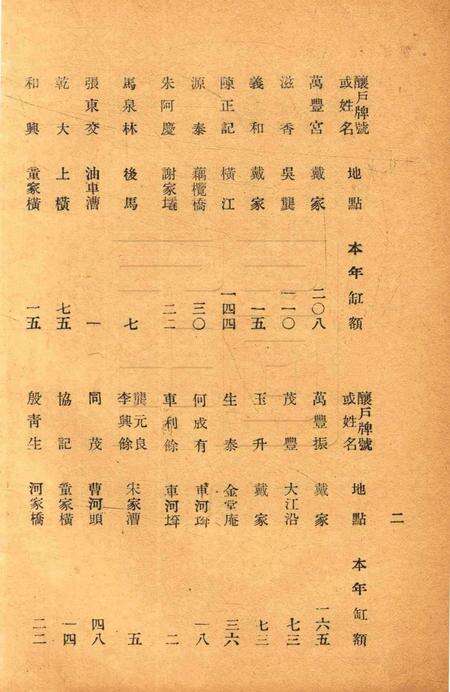 釀戶牌號或姓名 地點 本年缸額
萬豐宮 戴家 二〇八
滋香 吳龔 一一〇
義和 戴家 一五
陳正記 橫江 一四四
源泰 藕欖橋 三〇
朱阿慶 謝家壩 二二
馬泉林 後馬 七
張東交 油車漕 一
乾大 上橫 七五
和興 童家橫 一五
釀戶牌號或姓名 地點 本年缸額
萬豐振 戴家 一六五
茂豐 大江沿 七三
玉升 戴家 七三
生泰 金堂庵 三六
何成有 車河𡌴 一八
車利餘 車河𡌴 二
龔元良 李興餘 宋家漕 五
同茂 曹河頭 四八
協記 童家橫 一四
殷青生 河家橋 二二
二